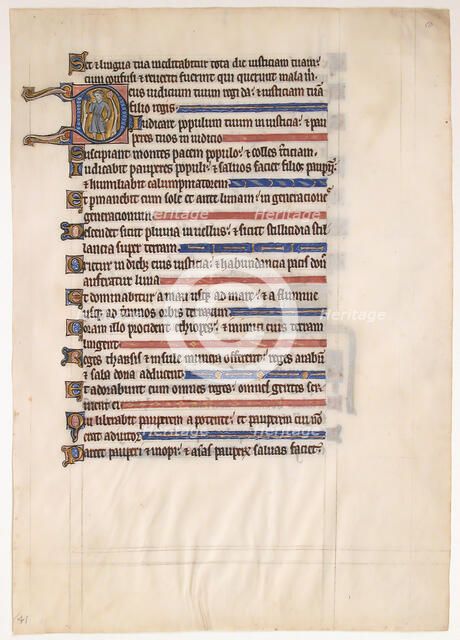 Set & lingua mea meditabitur tota die iusticiam tuam:
cum confusi & reveriti fuerint qui querunt mala m
Deus iudicium tuum regi da: & iusticiam tuā
filio regis
Iudicare populum tuum in iusticia: & pau
peres tuos in iudicio
Suscipiant montes pacem populo: & colles
Iudicabit pauperes populi: & salvos faciet filios paupm:
& humiliabit calumpniatorem
Et pmanebit cum sole et ante lunam: in generacione
generacionum
Descendet sicut pluvia in vellus: & sicut stillicidia stil
lancia super terram
Orietur in dieb; eius iusticia: & habundancia pacis don
auferatur luna
Et dominabitur a mari usq; ad mare: & a flumine
usq; ad tminos orbis terrarum
Coram illo procident ethiopes: & inimici eius terram
lingent
Reges tharsis & insule munera offerent: reges arabum
& saba dona adducent
Et adorabunt eum omnes reges: omnes gentes ser
vient ei
Quia liberabit pauperem a potente: et pauperem cui nō
erat adiutor
Parcet pauperi & inopi: & aīas pauperū salvas faciet:
Heritage
Heritage
Heritage
Heritage
41